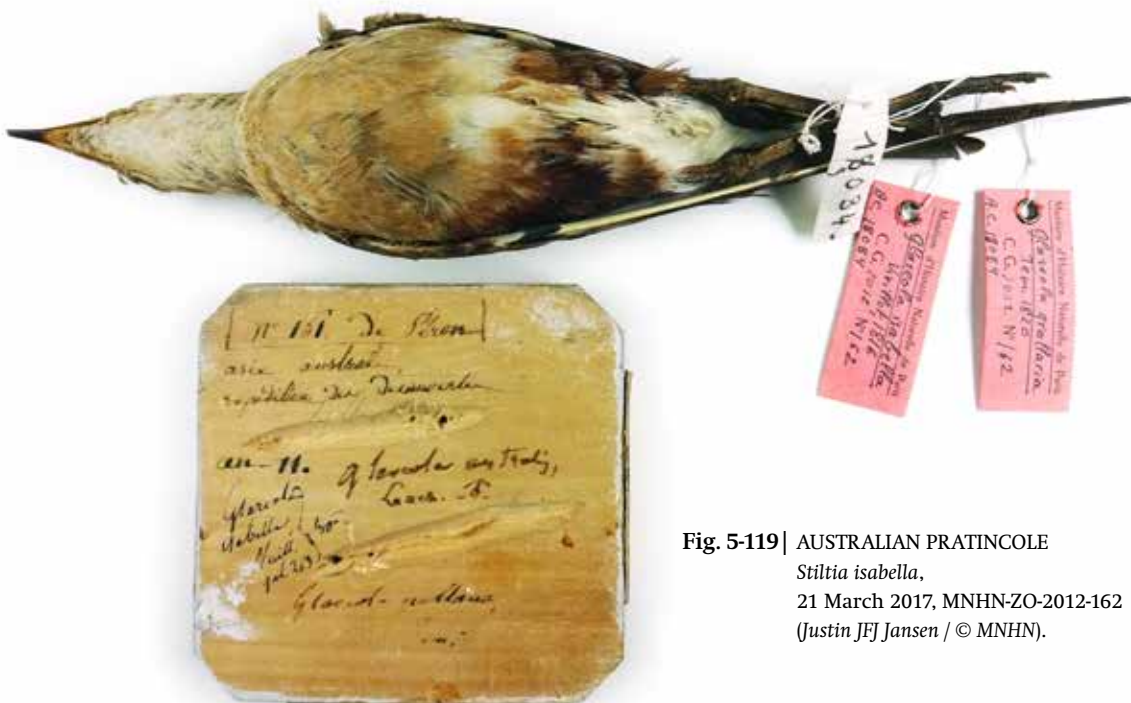 18084.
Muséum d'Histoire Naturelle de Paris
Glareola isabella
Vieillot 1816
C.G. 2012 N°162
A.C. 18084
Muséum d'Histoire Naturelle de Paris
Glareola grallaria
Tem. 1820
C.G. 2012 N°162
A.C. 18084
N° 151 De Péron
asie austral.
expédition des Découvertes
an 11.
Glareola australis,
Leach.
Glareola
isabella
Vieill.
gal 263
Glareola
Fig. 5-119| AUSTRALIAN PRATINCOLE
Stiltia isabella,
21 March 2017, MNHN-ZO-2012-162
(Justin JFJ Jansen / © MNHN).